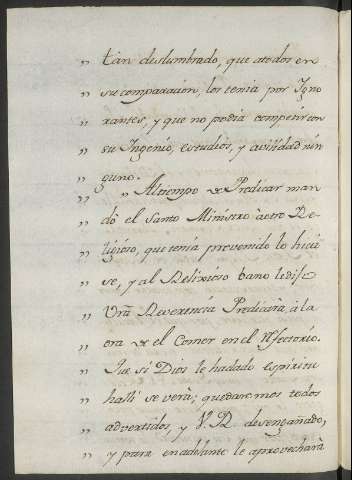 „ tan deslumbrado, que atodos en
„ su comparacion, los tenia por Igno
„ rantes, y que no podia competir con
„ su Ingenio, estudios, y avilidad nin
„ guno.
„ „ Al tiempo de Predicar man
„ dò el Santo Ministro à otro Re-
„ ligioso, que tenia prevenido lo hicie
„ se, y al Relixioso bano le dise
„ Vrã Reverencia Predicarà, à la
„ ora de el Comer en el Refectorio.
„ Que si Dios le hadado espiritu
„ hallí se verà; quedaremos todos
„ advertidos, y V. R. desengañado,
„ y para en adelante le aprovecharà